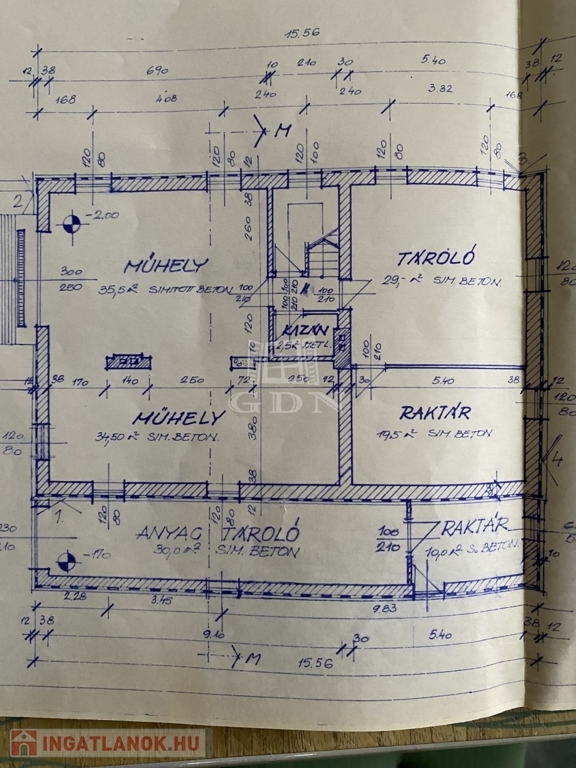 15.56
12 38 690 10 210 30 5.40 38 12
168 4.08 240 240 3.32 168
M
120 80 120 80 12 120 100 120 80 120 80
3.
2
-2.00
38
260
MŰHELY
35,5 m² SIMÍTOTT BETON
TÁROLÓ
29,- m² SIM. BETON.
300
260
100
210
100
210
120
80
KAZÁN
2,5 m² METL.
120
10
100
210
12 38 170 140 250 72 250 12 30 5.40 38 12
GDN
MŰHELY
34,50 m² SIM. BETON
RAKTÁR
19,5 m² SIM. BETON
380
120
80
120
80
4
38
1.
120 80 120 80 12
230
210
ANYAG TÁROLÓ
30,0 m² SIM. BETON
100
210
RAKTÁR
10,0 m² S. BETON.
-1.70
2.28 3.45 9.83
12 38 9.10 30 5.40 38 12
15.56
M
INGATLANOK.HU